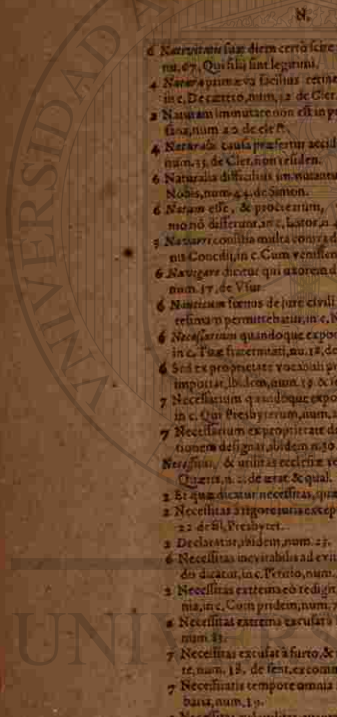 N.
6 Natevitatis suæ diem certò scire
nu. 67, Qui filij sint legitimi.
4 Natura primæva facilius retine
in c, De cætero, num, 12 de Cler.
2 Naturam immutare non est in po
sana, num 22. de cler.
4 Naturalis causa præfertur accid
num, 33, de Cler, non residen.
6 Naturalia difficilius immutantur
Nobis, num 44. de Simon.
6 Natum esse, & procreatum,
mo nō differunt, in c, Lator, n. 4
5 Navarri consilia multa contra d
nis Concilij, in c. Cum venissen
6 Navigare dicitur qui uxorem d
num. 37, de Vsur
6 Nauticum fœnus de jure civili
tesimam permittebatur, in c, N
6 Necessarium quandoque expo
in c. Tuæ fraternitati, nu. 18, de
6 Sed ex proprietate vocabuli
importat, ibidem, num. 19 &
7 Necessarium quandoque expo
in c. Qui Presbyterum, num,
7 Necessarium ex proprietate de
tionem designat, ibidem n. 30
Necessitas, & utilitas ecclesiæ
Quæris, n. 2: de ætat & qual.
2 Et quæ dicatur necessitas, qua
2 Necessitas à rigore iuris excep
22 de fil, Presbyter.
2 Declaratur, ibidem, num. 23.
6 Necessitas inevitabilis ad evit
do dicatur, in c. Petitio, num.
2 Necessitas extrema eò redigit
nia, in c, Cum pridem, num, 7
6 Necessitas extrema excusat à
num 81.
7 Necessitas excusat à furto, &
te, num, 18, de sent, excomm
7 Necessitatis tempore omnia
bana, num, 19.
UNIVERSIDAD
UNIVERS